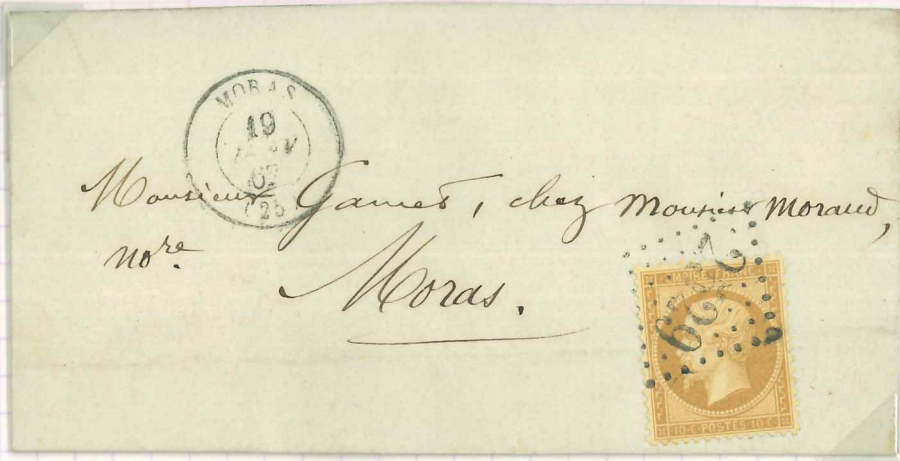 MORAS
19
67
(25)
Monsieur Gamet, chez Monsieur Moraud,
nore.
Moras.
EMPIRE FRANC
10 C POSTES 10 C